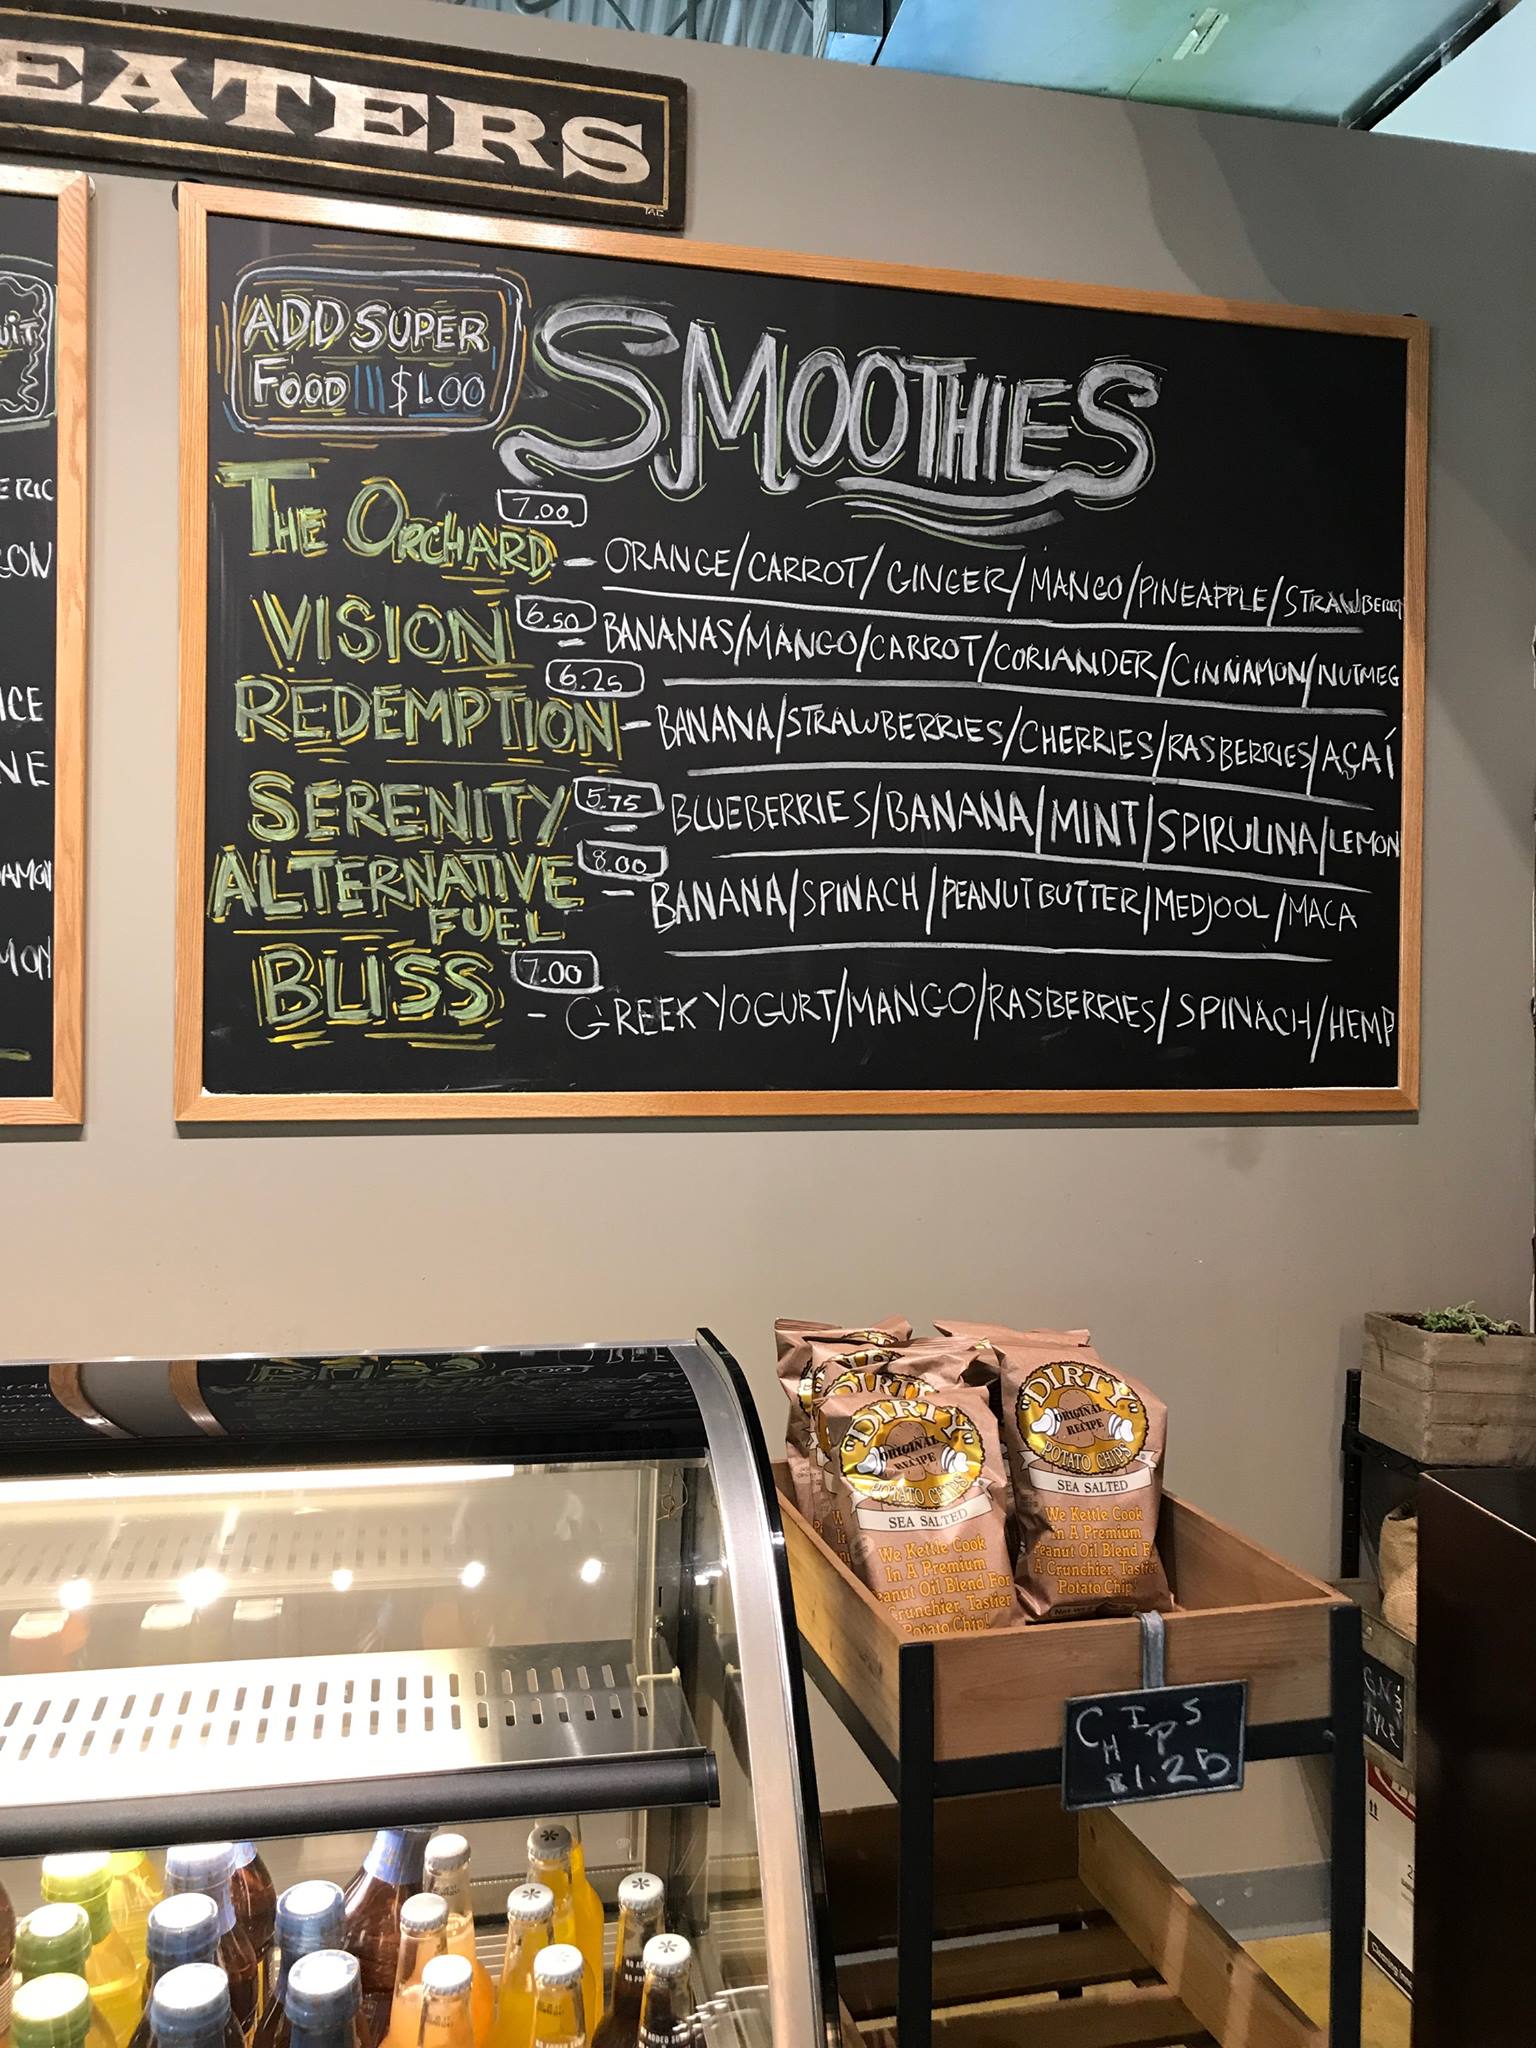 EATERS
TAC
ADD SUPER
FOOD $1.00
SMOOTHIES
THE ORCHARD 7.00 - ORANGE/CARROT/GINGER/MANGO/PINEAPPLE/STRAWBERRY
VISION 6.50 - BANANAS/MANGO/CARROT/CORIANDER/CINNAMON/NUTMEG
REDEMPTION 6.25 - BANANA/STRAWBERRIES/CHERRIES/RASBERRIES/AÇAÍ
SERENITY 5.75 - BLUEBERRIES/BANANA/MINT/SPIRULINA/LEMON
ALTERNATIVE FUEL 8.00 - BANANA/SPINACH/PEANUT BUTTER/MEDJOOL/MACA
BLISS 7.00 - GREEK YOGURT/MANGO/RASBERRIES/SPINACH/HEMP
UIT
ERIC
ICE
NE
AMON
MON
"DIRTY"
ORIGINAL
RECIPE
POTATO CHIPS
SEA SALTED
We Kettle Cook
In A Premium
Peanut Oil Blend For
Crunchier, Tastier
Potato Chip!
"DIRTY"
ORIGINAL
RECIPE
POTATO CHIPS
SEA SALTED
We Kettle Cook
In A Premium
Peanut Oil Blend F
A Crunchier, Tastier
Potato Chip!
CHIPS
$1.25